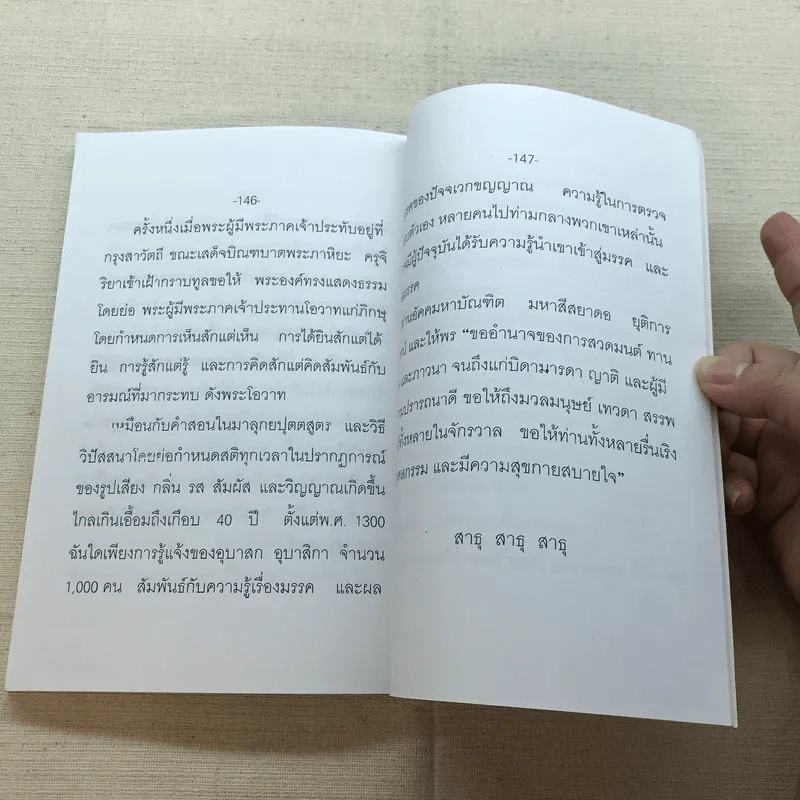 -146-
ครั้งหนึ่งเมื่อพระผู้มีพระภาคเจ้าประทับอยู่ที่
กรุงสาวัตถี ขณะเสด็จบิณฑบาตพระภาหิยะ ครุจิ
ริยาเข้าเฝ้ากราบทูลขอให้ พระองค์ทรงแสดงธรรม
โดยย่อ พระผู้มีพระภาคเจ้าประทานโอวาทแก่ภิกษุ
โดยกำหนดการเห็นสักแต่เห็น การได้ยินสักแต่ได้
ยิน การรู้สักแต่รู้ และการคิดสักแต่คิดสัมพันธ์กับ
อารมณ์ที่มากระทบ ดังพระโอวาท
เหมือนกับคำสอนในมาลุกยปุตตสูตร และวิธี
วิปัสสนาโดยย่อกำหนดสติทุกเวลาในปรากฏการณ์
ของรูปเสียง กลิ่น รส สัมผัส และวิญญาณเกิดขึ้น
ไกลเกินเอื้อมถึงเกือบ 40 ปี ตั้งแต่พ.ศ. 1300
ฉันใดเพียงการรู้แจ้งของอุบาสก อุบาสิกา จำนวน
1,000 คน สัมพันธ์กับความรู้เรื่องมรรค และผล
-147-
ของปัจจเวกขญญาณ ความรู้ในการตรวจ
ตัวเอง หลายคนไปท่ามกลางพวกเขาเหล่านั้น
มีผู้ปัจจุบันได้รับความรู้นำเขาเข้าสู่มรรค และ
อัคคมหาบัณฑิต มหาสีสยาดอ ยุติการ
และให้พร “ขออำนาจของการสวดมนต์ ทาน
และภาวนา จนถึงแก่บิดามารดา ญาติ และผู้มี
ปรารถนาดี ขอให้ถึงมวลมนุษย์ เทวดา สรรพ
ทั้งหลายในจักรวาล ขอให้ท่านทั้งหลายรื่นเริง
และมีความสุขกายสบายใจ”
สาธุ สาธุ สาธุ